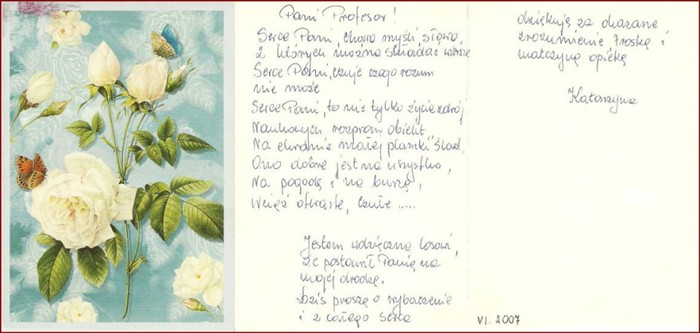 Pani Profesor!
Serce Pani, chowa myśli, słowa,
z których można składać wiersze
Serce Pani, czuje czego rozum
nie może
Serce Pani, to nie tylko życie zdrój
Naukowych rozpraw obelit
Na ekranie małej plamki ślad.
Ono dobre jest na wszystko,
Na pogodę i na burzę,
Wciąż otwarte, czułe .....
Jestem wdzięczna losowi,
że postawił Panią na
mojej drodze.
Dziś proszę o wybaczenie
i z całego serca
dziękuję za okazane
zrozumienie troskę i
matczyną opiekę
Katarzyna
VI. 2007